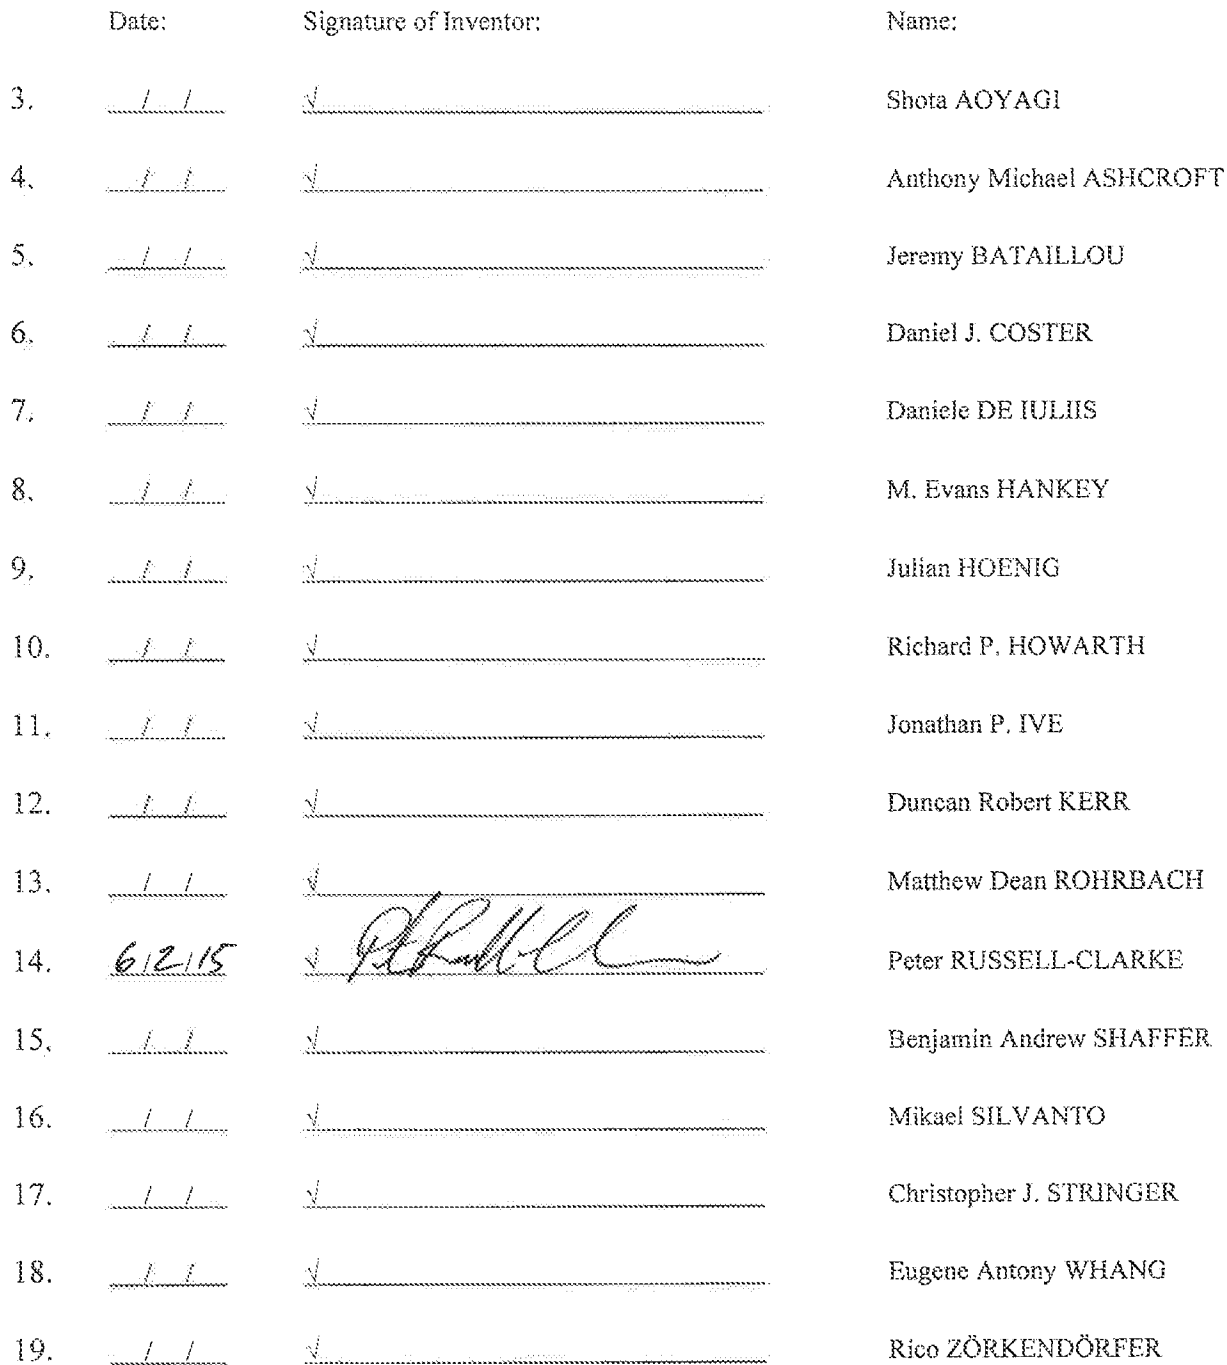 Date: Signature of Inventor: Name:
3. / / √ Shota AOYAGI
4. / / √ Anthony Michael ASHCROFT
5. / / √ Jeremy BATAILLOU
6. / / √ Daniel J. COSTER
7. / / √ Daniele DE IULIIS
8. / / √ M. Evans HANKEY
9. / / √ Julian HOENIG
10. / / √ Richard P. HOWARTH
11. / / √ Jonathan P. IVE
12. / / √ Duncan Robert KERR
13. / / √ Matthew Dean ROHRBACH
14. 6/2/15 √ Peter RUSSELL-CLARKE
15. / / √ Benjamin Andrew SHAFFER
16. / / √ Mikael SILVANTO
17. / / √ Christopher J. STRINGER
18. / / √ Eugene Antony WHANG
19. / / √ Rico ZÖRKENDÖRFER